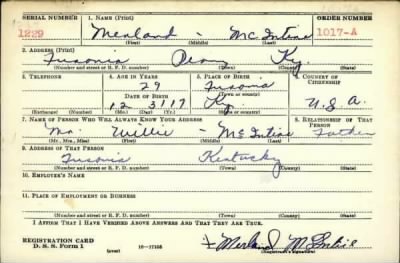 SERIAL NUMBER 1. NAME (Print) ORDER NUMBER
1229 Merland - McIntire 1017-A
(First) (Middle) (Last)
2. ADDRESS (Print)
Fusonia Perry Ky.
(Number and street or R. F. D. number) (Town) (County) (State)
3. TELEPHONE 4. AGE IN YEARS 5. PLACE OF BIRTH 6. COUNTRY OF CITIZENSHIP
29 Fusonia
DATE OF BIRTH (Town or county)
12 31 17 Ky. U.S.A.
(Exchange) (Number) (Mo.) (Day) (Yr.) (State or country)
7. NAME OF PERSON WHO WILL ALWAYS KNOW YOUR ADDRESS 8. RELATIONSHIP OF THAT PERSON
Mr. Willie - McIntire Father
(Mr., Mrs., Miss) (First) (Middle) (Last)
9. ADDRESS OF THAT PERSON
Fusonia Kentucky
(Number and street or R. F. D. number) (Town) (County) (State)
10. EMPLOYER'S NAME
11. PLACE OF EMPLOYMENT OR BUSINESS
(Number and street or R. F. D. number) (Town) (County) (State)
I AFFIRM THAT I HAVE VERIFIED ABOVE ANSWERS AND THAT THEY ARE TRUE.
REGISTRATION CARD
D. S. S. Form 1 (over) 16-17105 Merland McIntire
(Registrant's signature)